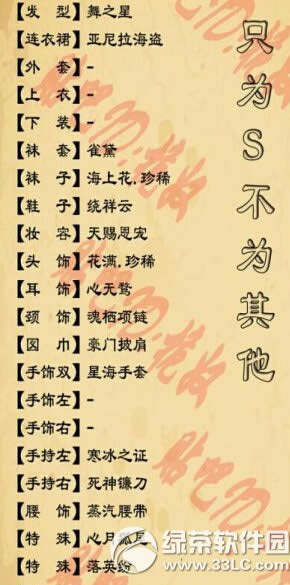 【发 型】舞之星
【连衣裙】亚尼拉海盗
【外 套】-
【上 衣】-
【下 装】-
【袜 套】雀黛
【袜 子】海上花.珍稀
【鞋 子】绕祥云
【妆 容】天赐恩宠
【头 饰】花满.珍稀
【耳 饰】心天鹜
【颈 饰】魂栖项链
【围 巾】豪门披肩
【手饰双】星海手套
【手饰左】-
【手饰右】-
【手持左】寒冰之证
【手持右】死神镰刀
【腰 饰】蒸汽腰带
【特 殊】心月狐尾
【特 殊】落英纷
只为S不为其他
绿茶软件园
www.33LC.com